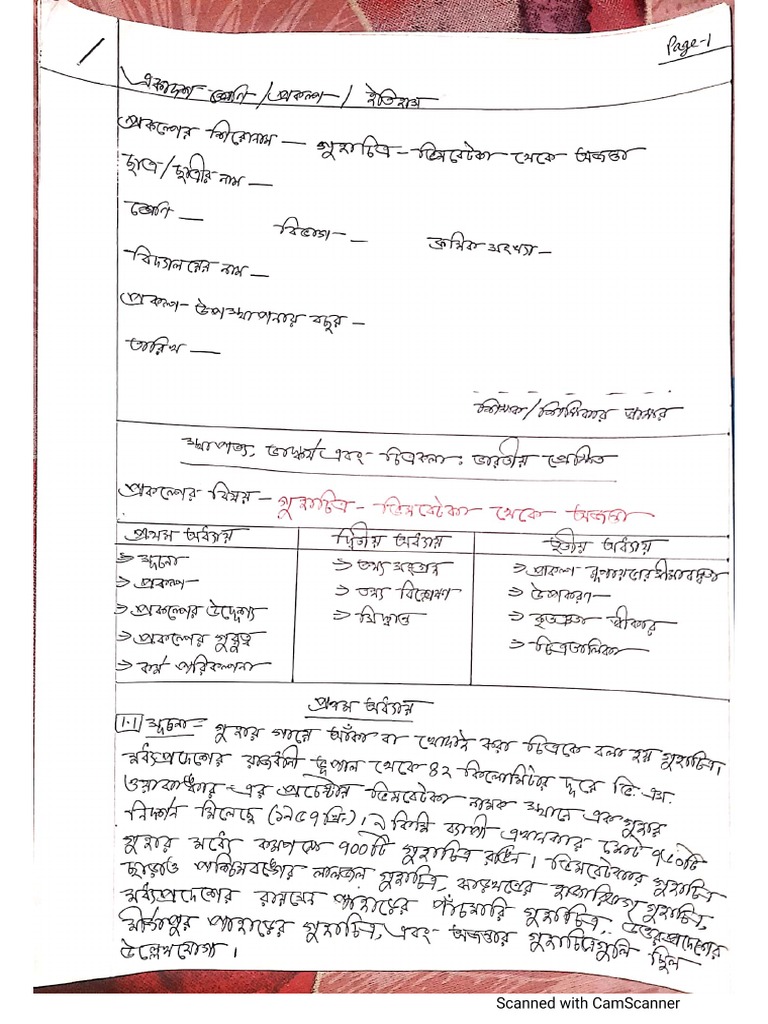 Page-1
1
একাদশ শ্রেণি / প্রকল্প / ইতিহাস
প্রকল্পের শিরোনাম — গুহাচিত্র - ভিমবেটকা থেকে অজন্তা
ছাত্র/ছাত্রীর নাম —
শ্রেণি — বিভাগ - — ক্রমিক সংখ্যা —
বিদ্যালয়ের নাম —
প্রকল্প - উপস্থাপনায় বছর —
তারিখ —
শিক্ষক/শিক্ষিকার স্বাক্ষর
স্থাপত্য, ভাস্কর্য এবং চিত্রকলা : ভারতীয় প্রেক্ষিত
প্রকল্পের বিষয় — গুহাচিত্র - ভিমবেটকা থেকে অজন্তা
প্রথম অধ্যায় দ্বিতীয় অধ্যায় তৃতীয় অধ্যায়
⇒ সূচনা ⇒ তথ্য সংগ্রহ ⇒ প্রকল্প রূপায়ণের সীমাবদ্ধতা
⇒ প্রকল্প ⇒ তথ্য বিশ্লেষণ ⇒ উপকরণ
⇒ প্রকল্পের উদ্দেশ্য ⇒ সিদ্ধান্ত ⇒ কৃতজ্ঞতা স্বীকার
⇒ প্রকল্পের গুরুত্ব ⇒ চিত্রতালিকা
⇒ কর্ম পরিকল্পনা
প্রথম অধ্যায়
1.1 সূচনা = গুহার গায়ে আঁকা বা খোদাই করা চিত্রকে বলা হয় গুহাচিত্র।
মধ্যপ্রদেশের রাজধানী ভূপাল থেকে ৪২ কিলোমিটার দূরে ভি. এস.
ওয়াকাঙ্কার-এর প্রচেষ্টায় ভিমবেটকা নামক স্থানে এক গুহার
নিদর্শন মিলেছে (১৯৫৭ খ্রি:)। কিমি ব্যাপী এখানকার মোট ৭৫০টি
গুহার মধ্যে কমপক্ষে ৭০০টি গুহাচিত্র রঙিন। ভিমবেটকার গুহাচিত্র
ছাড়াও পশ্চিমবঙ্গের লালজল গুহাচিত্র, ঝাড়খণ্ডের হাজারিবাগ গুহাচিত্র,
মধ্যপ্রদেশের রায়সেন পাহাড়ের পাঁচমারি গুহাচিত্র, উত্তরপ্রদেশের
মীর্জাপুর পাহাড়ের গুহাচিত্র, এবং অজন্তার গুহাচিত্রগুলি ছিল
উল্লেখযোগ্য।
Scanned with CamScanner